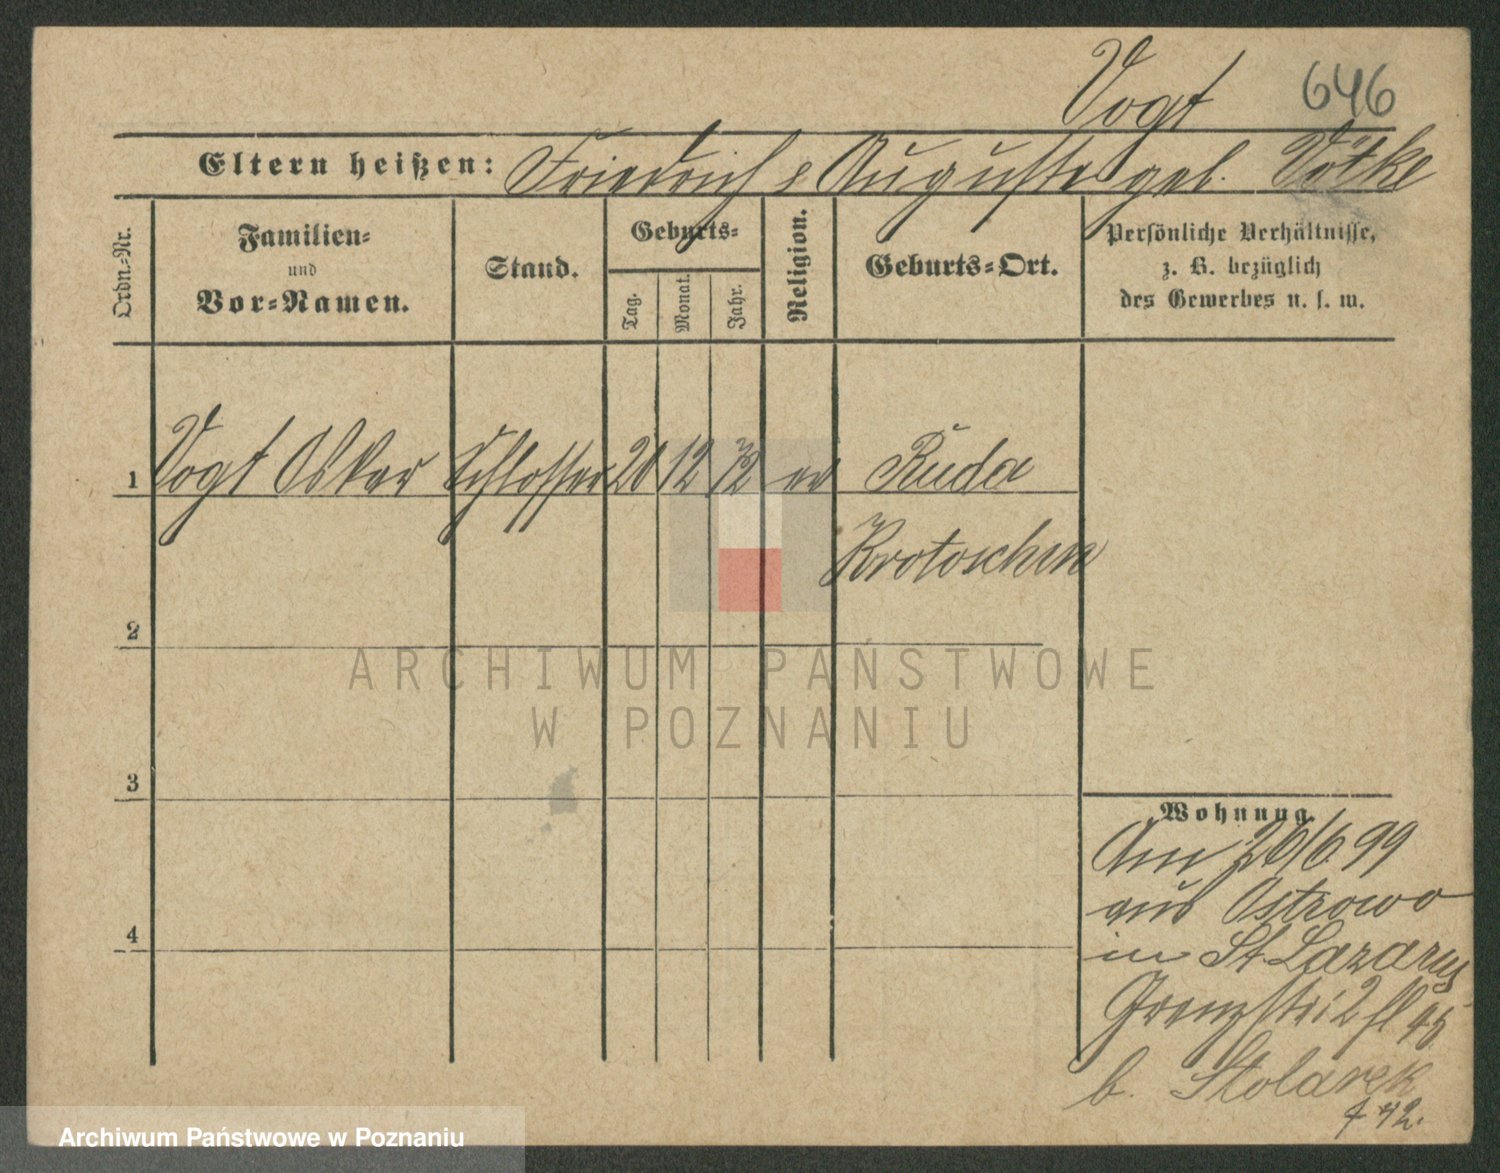 Vogt 646
Eltern heißen: Friedrich & Auguste geb. Vötke
Ordn.-Nr.
Familien-
und
Vor-Namen.
Stand.
Geburts-
Tag.
Monat.
Jahr.
Religion.
Geburts-Ort.
Persönliche Verhältnisse,
z. B. bezüglich
des Gewerbes u. s. w.
1 Vogt Oskar Schlosser 20 12 72 ev Ruda
Krotoschin
2
3
4
Wohnung.
Am 26/6 99
aus Ostrowo
in St. Lazarus
Grenzstr. 2
b. Stolarek
ARCHIWUM PAŃSTWOWE
W POZNANIU
Archiwum Państwowe w Poznaniu